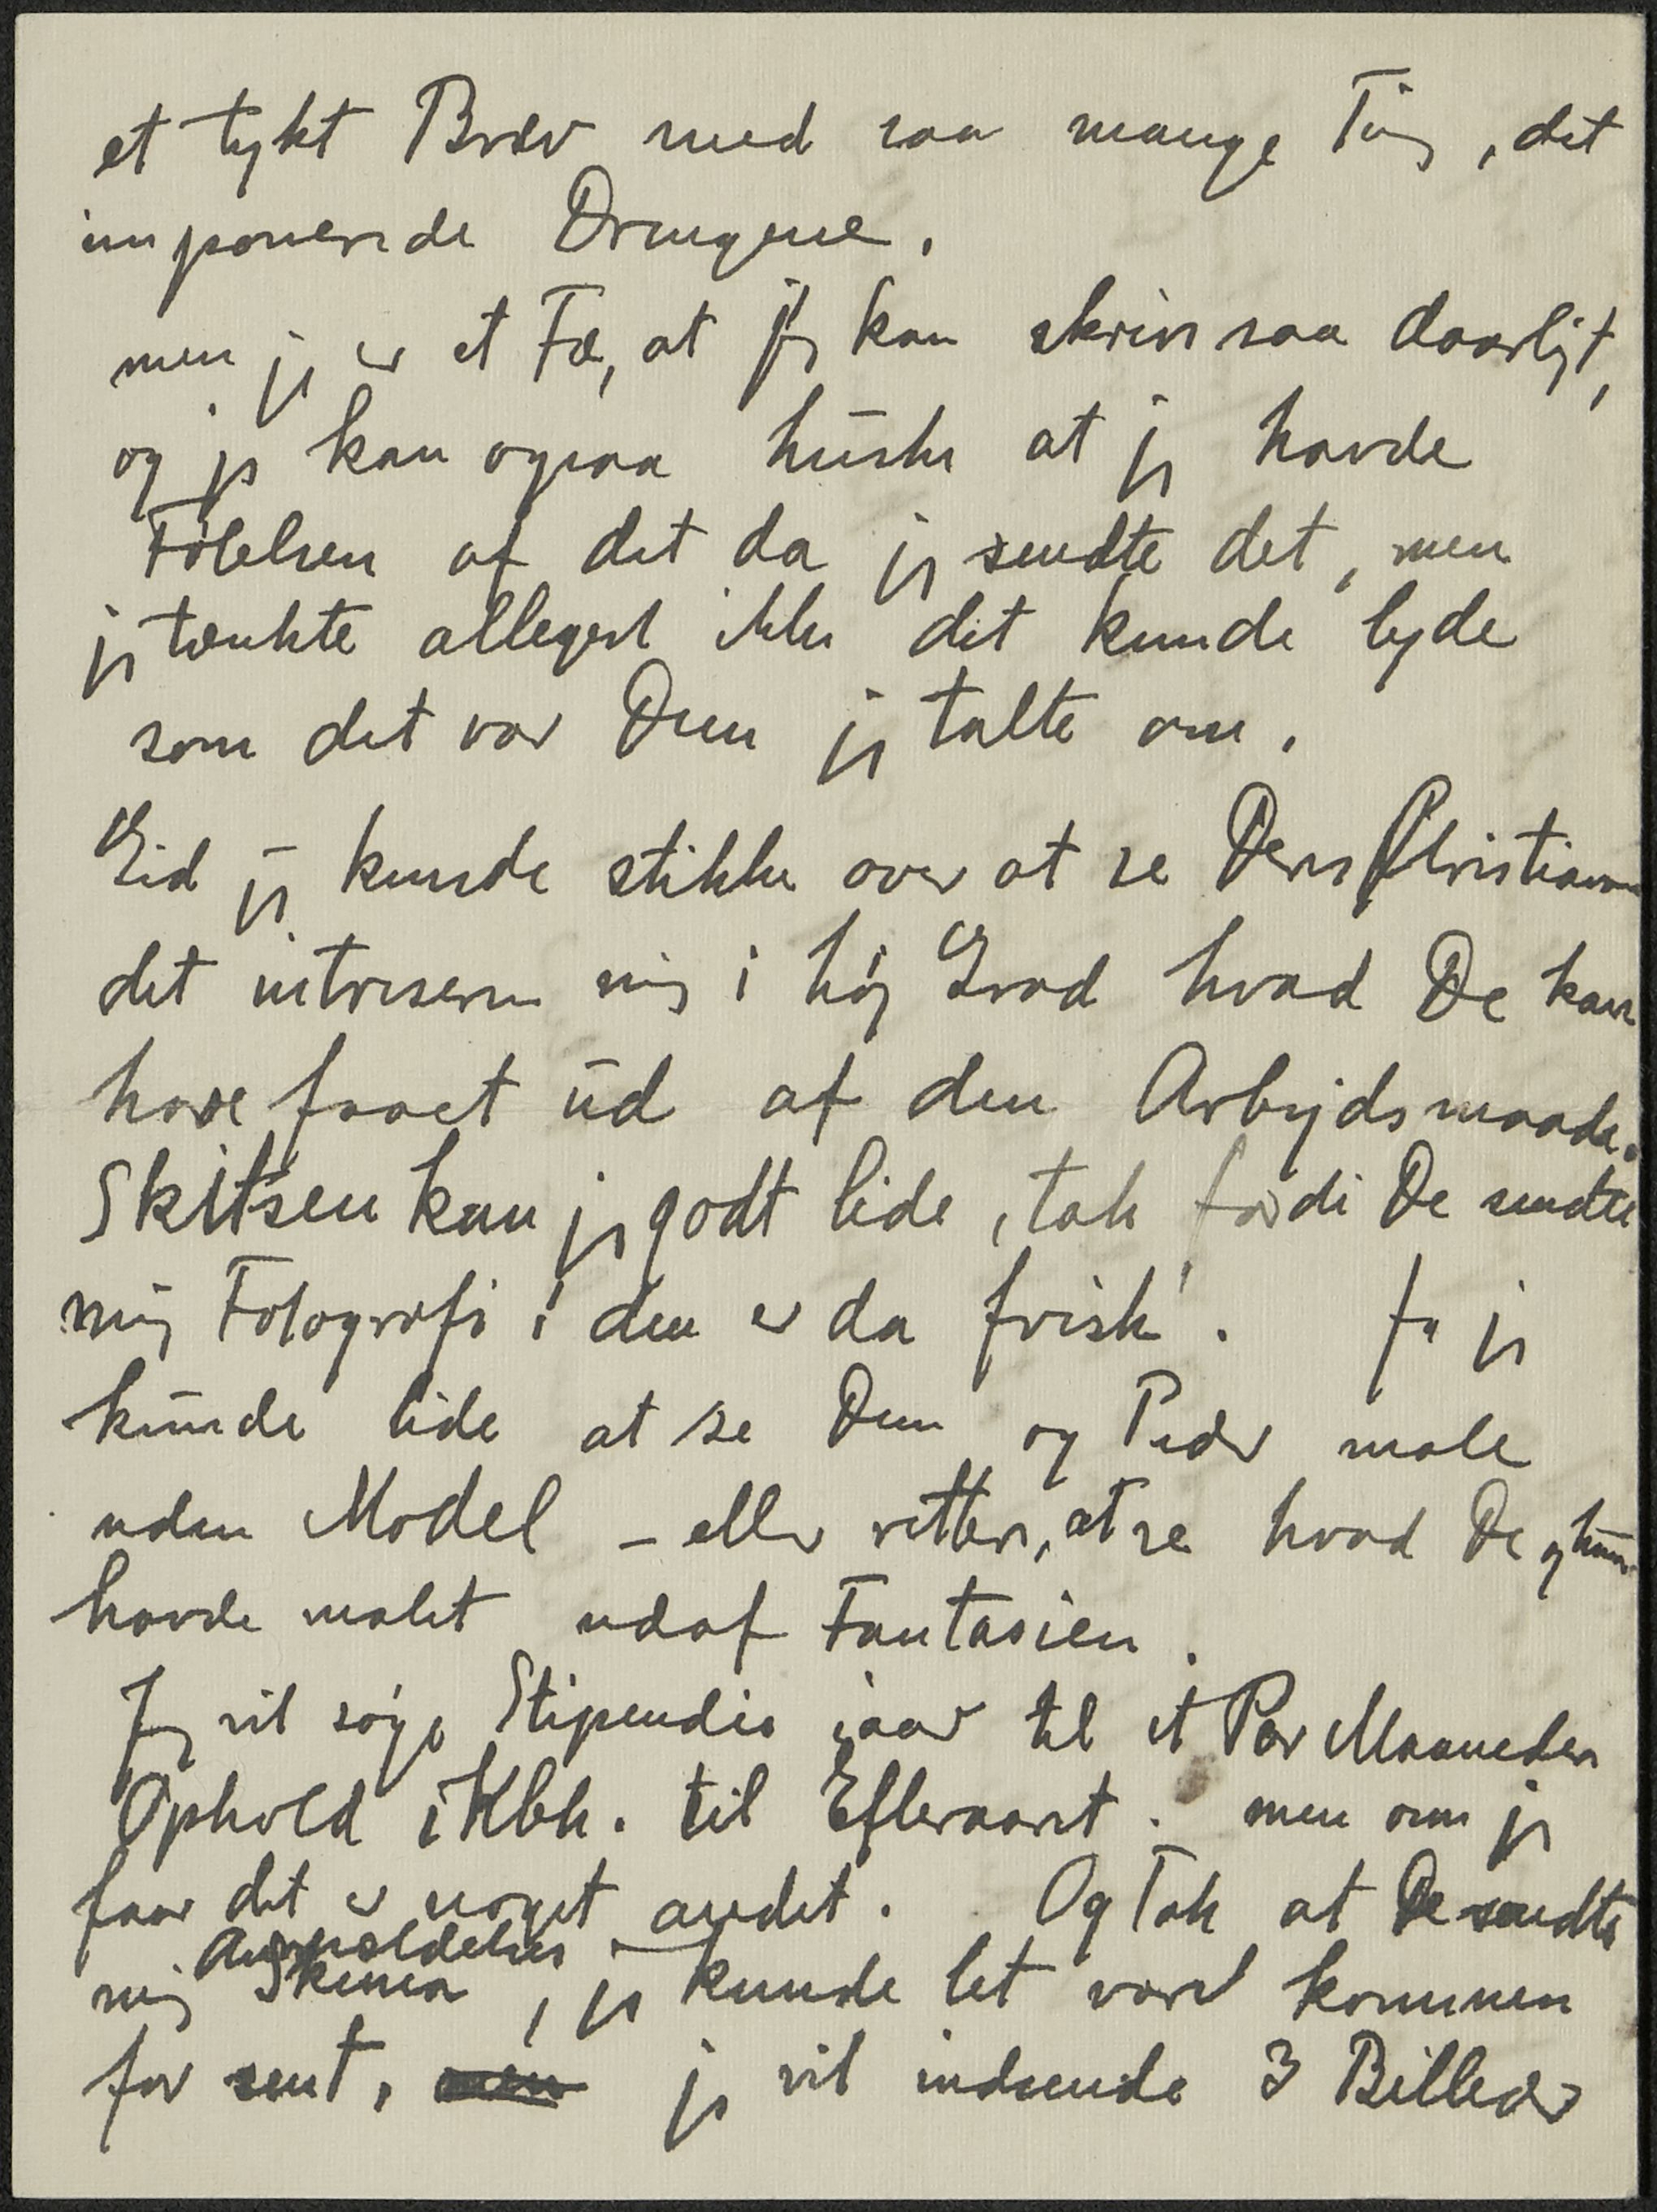 et tykt Brev med saa mange Ting, det
imponerede Drengene.
men jeg er et Fæ, at jeg kan skrive saa daarligt,
og jeg kan ogsaa huske at jeg havde
Følelsen af det da jeg sendte det, men
jeg tænkte alligevel ikke det kunde lyde
som det var Dem jeg talte om.
Gid jeg kunde stikke over at se Deres Christian
det intreserer mig i høj Grad hvad De kan
have faaet ud af den Arbejdsmaade.
Skitsen kan jeg godt lide, tak fordi De sendte
mig Fotografi! den er da frisk! Ja jeg
kunde lide at se Dem og Peder male
uden Model – eller rettere, at se hvad De og han
havde malet udaf Fantasien.
Jeg vil søge Stipendie iaar til et Par Maaneders
Ophold i Kbh. til Efteraaret. men om jeg
faar det er noget andet. Og Tak at De sendte
Anmeldelses
mig Skema, jeg kunde let været kommen
for sent, men jeg vil indsende 3 Billeder